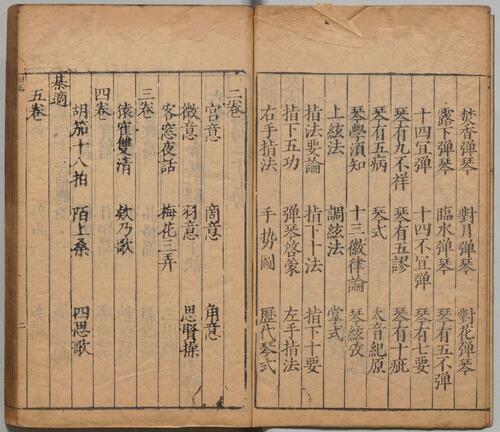 焚香彈琴 對月彈琴 對花彈琴
露下彈琴 臨水彈琴 琴有五不彈
十四宜彈 十四不宜彈 琴有七要
琴有九不祥 琴有五謬 琴有十疵
琴有五病 琴式 太音紀原
琴學須知 十三徽律論 琴絃攷
上絃法 調絃法 掌式
指法要論 指下十法 指下十要
指下五功 彈琴啓蒙 左手指法
右手指法 手势圖 歷代琴式
二卷
宮意 商意 角意
徵意 羽意 思賢操
客窓夜話 梅花三弄
三卷
猿寉雙清 欸乃歌
四卷
胡笳十八拍 陌上桑 四思歌
棊適
五卷